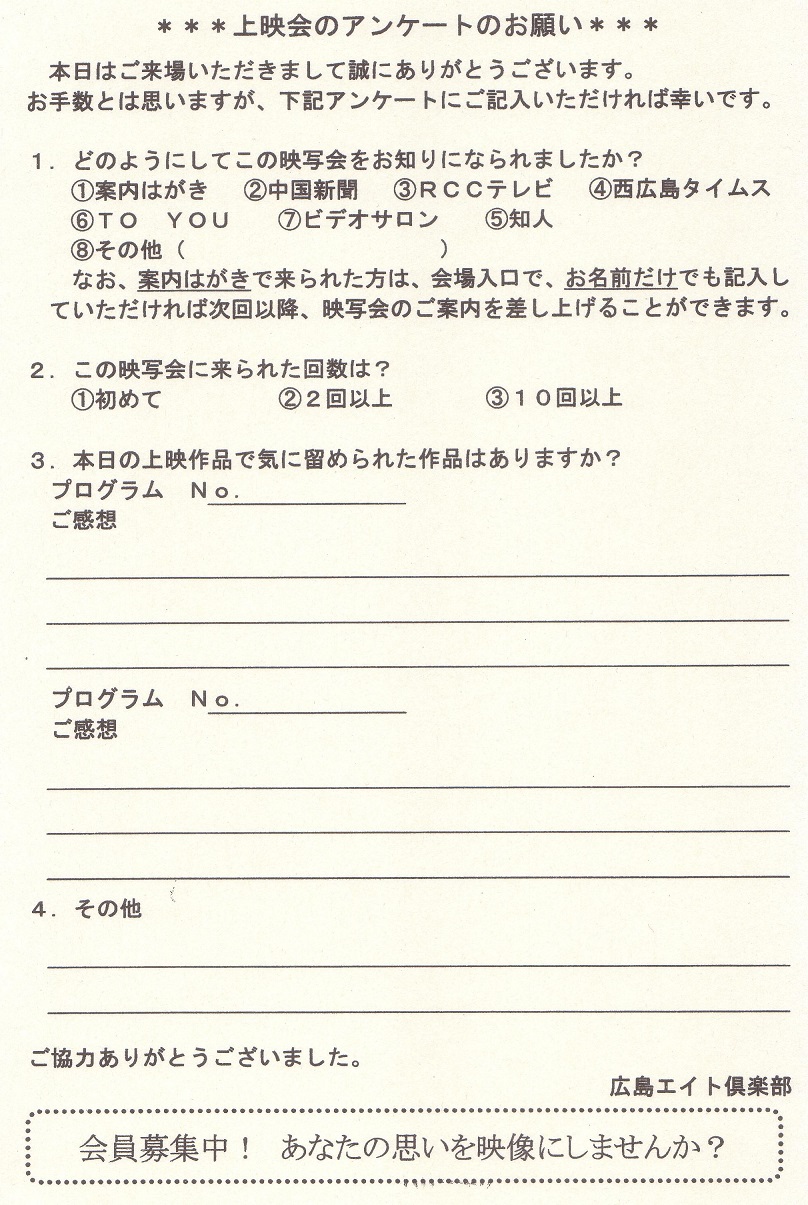 ＊＊＊上映会のアンケートのお願い＊＊＊
本日はご来場いただきまして誠にありがとうございます。
お手数とは思いますが、下記アンケートにご記入いただければ幸いです。
１．どのようにしてこの映写会をお知りになられましたか？
①案内はがき　②中国新聞　③ＲＣＣテレビ　④西広島タイムス
⑥ＴＯ　ＹＯＵ　⑦ビデオサロン　⑤知人
⑧その他（　　　　　　　　　　　）
なお、案内はがきで来られた方は、会場入口で、お名前だけでも記入し
ていただければ次回以降、映写会のご案内を差し上げることができます。
２．この映写会に来られた回数は？
①初めて　②２回以上　③１０回以上
３．本日の上映作品で気に留められた作品はありますか？
プログラム　Ｎｏ．
ご感想
プログラム　Ｎｏ．
ご感想
４．その他
ご協力ありがとうございました。
広島エイト倶楽部
会員募集中！　あなたの思いを映像にしませんか？